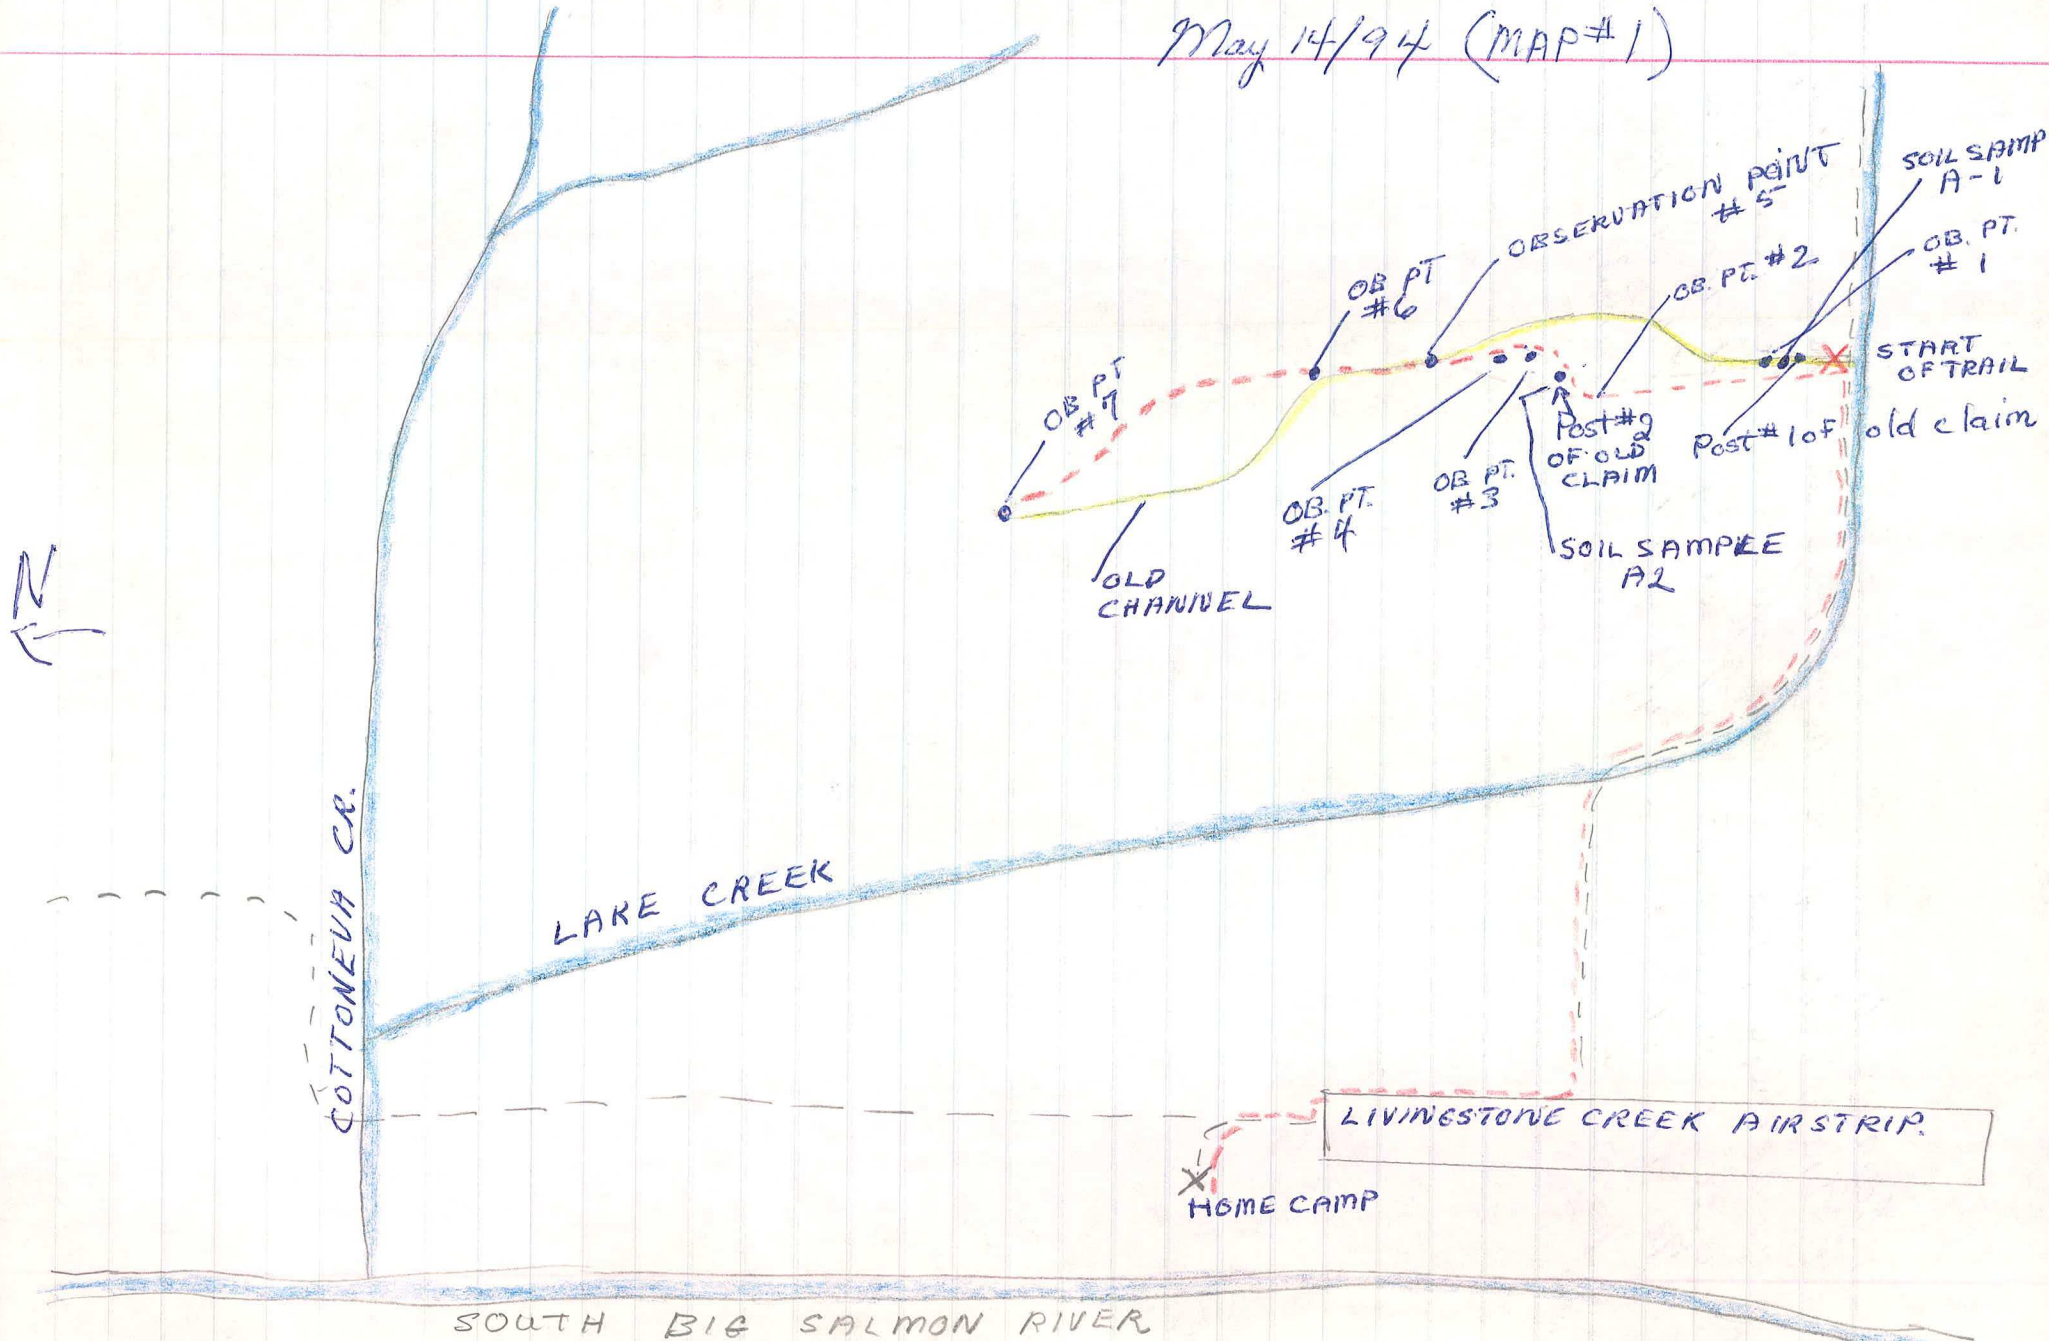 May 14/94 (MAP#1)
SOIL SAMP
A-1
OBSERVATION POINT
#5
OB. PT.
#1
OB. PT. #2
OB PT
#6
START
OF TRAIL
OB PT
#7
Post#2
OF OLD
CLAIM
Post#1 of old claim
OB. PT.
#3
OB. PT.
#4
SOIL SAMPLE
A2
OLD
CHANNEL
N
COTTONEVA CR.
LAKE CREEK
LIVINGSTONE CREEK AIRSTRIP.
HOME CAMP
SOUTH BIG SALMON RIVER